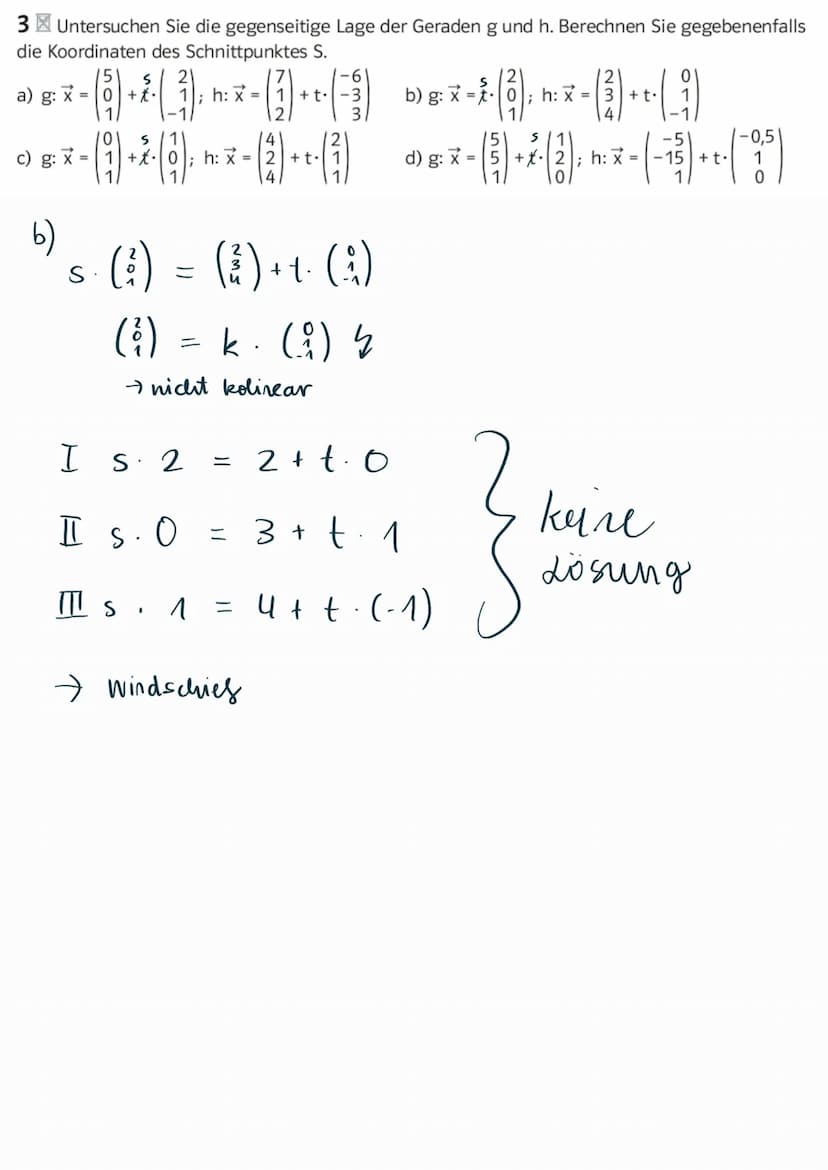 3 Untersuchen Sie die gegenseitige Lage der Geraden g und h. Berechnen Sie gegebenenfalls
die Koordinaten des Schnittpunktes S.
a) g: x⃗ = (5 0 1) + s t · (2 1 −1); h: x⃗ = (7 1 2) + t · (−6 −3 3) b) g: x⃗ = s t · (2 0 1); h: x⃗ = (2 3 4) + t · (0 1 −1)
c) g: x⃗ = (0 1 1) + s t · (1 0 1); h: x⃗ = (4 2 4) + t · (2 1 1) d) g: x⃗ = (5 5 1) + s t · (1 2 0); h: x⃗ = (−5 −15 1) + t · (−0,5 1 0)
b)
s · (2 0 1) = (2 3 4) + t · (0 1 -1)
(2 0 1) = k · (0 1 -1) ↯
→ nicht kolinear
I s · 2 = 2 + t · 0
II s · 0 = 3 + t · 1
III s · 1 = 4 + t · (-1)
} keine
Lösung
→ windschief